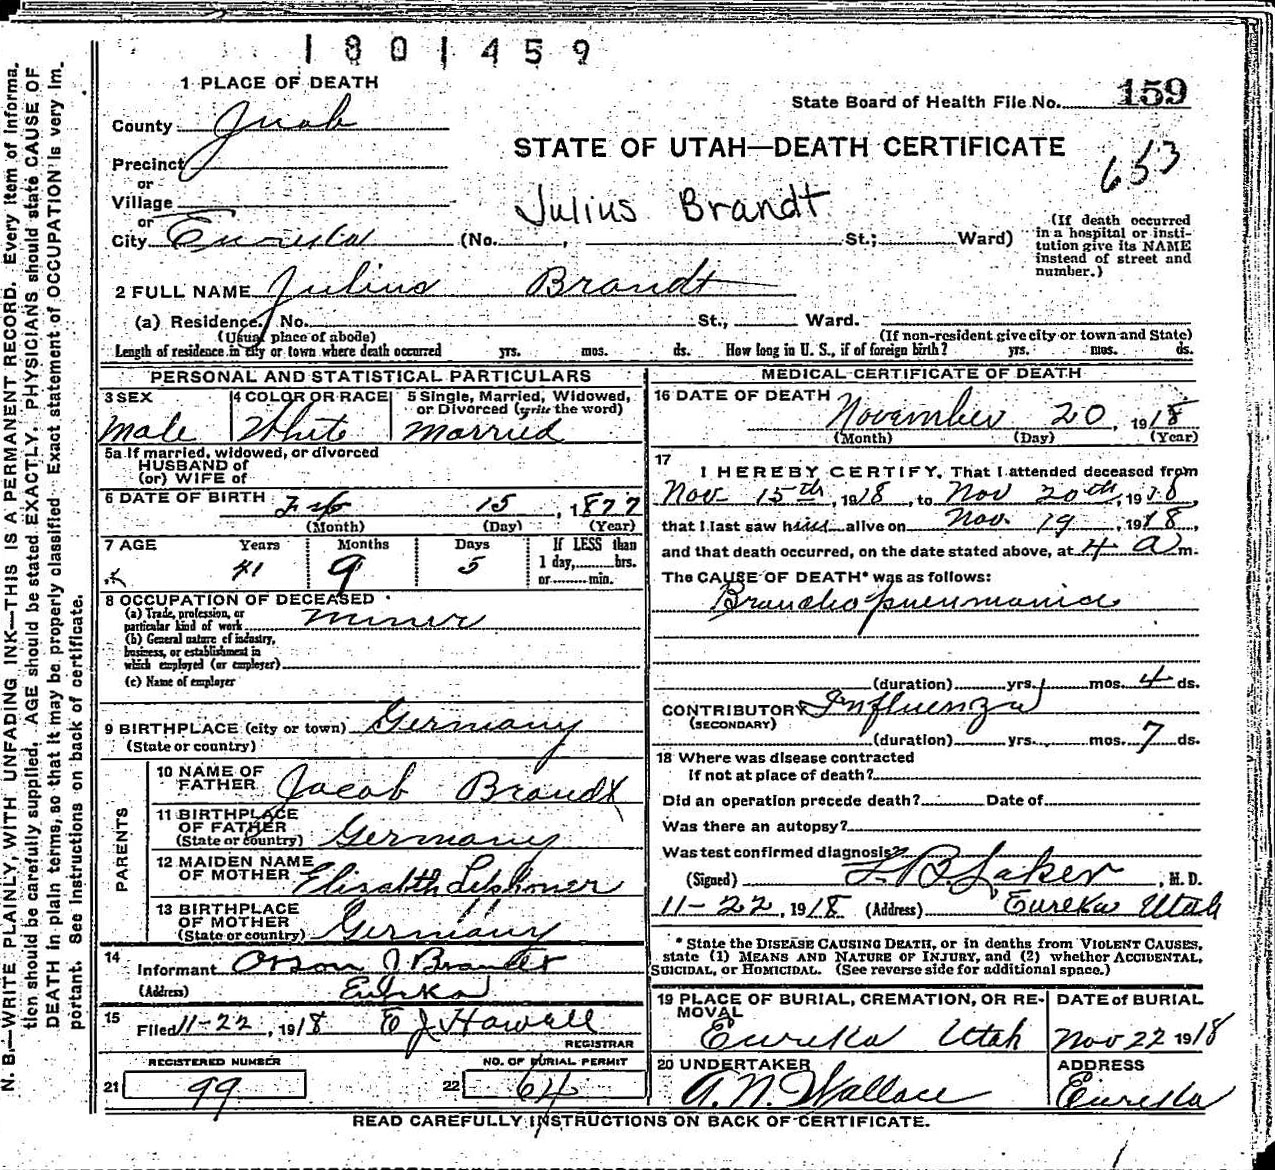 1801459
1 PLACE OF DEATH
State Board of Health File No. 159
County Juab
STATE OF UTAH—DEATH CERTIFICATE
653
Precinct
or
Village
Julius Brandt
or
City Eureka (No. , St.; Ward)
(If death occurred in a hospital or insti-
tution give its NAME
instead of street and
number.)
2 FULL NAME Julius Brandt
(a) Residence. No. St., Ward.
(Usual place of abode) (If non-resident give city or town and State)
Length of residence in city or town where death occurred yrs. mos. ds. How long in U. S., if of foreign birth? yrs. mos. ds.
PERSONAL AND STATISTICAL PARTICULARS
3 SEX 4 COLOR OR RACE 5 Single, Married, Widowed,
or Divorced (write the word)
Male White Married
5a If married, widowed, or divorced
HUSBAND of
(or) WIFE of
6 DATE OF BIRTH Feb 15, 1877
(Month) (Day) (Year)
7 AGE Years Months Days If LESS than
1 day, hrs.
or min.
41 9 5
8 OCCUPATION OF DECEASED
(a) Trade, profession, or
particular kind of work Miner
(b) General nature of industry,
business, or establishment in
which employed (or employer)
(c) Name of employer
9 BIRTHPLACE (city or town) Germany
(State or country)
PARENTS
10 NAME OF
FATHER Jacob Brandt
11 BIRTHPLACE
OF FATHER
(State or country) Germany
12 MAIDEN NAME
OF MOTHER Elisabth
13 BIRTHPLACE
OF MOTHER
(State or country) Germany
14
Informant Orson J Brandt
(Address) Eureka
15
Filed 11-22, 1918 E J Howell
REGISTRAR
REGISTERED NUMBER NO. OF BURIAL PERMIT
21 99 22 64
MEDICAL CERTIFICATE OF DEATH
16 DATE OF DEATH November 20, 1918
(Month) (Day) (Year)
17
I HEREBY CERTIFY, That I attended deceased from
Nov 15th, 1918, to Nov 20th, 1918,
that I last saw him alive on Nov. 19, 1918,
and that death occurred, on the date stated above, at 4 a m.
The CAUSE OF DEATH* was as follows:
Broncho pneumonia
(duration) yrs. mos. 4 ds.
CONTRIBUTORY Influenza
(SECONDARY)
(duration) yrs. mos. 7 ds.
18 Where was disease contracted
If not at place of death?
Did an operation precede death? Date of
Was there an autopsy?
Was test confirmed diagnosis?
(Signed) Laker, M. D.
11-22, 1918 (Address) Eureka Utah
* State the DISEASE CAUSING DEATH, or in deaths from VIOLENT CAUSES,
state (1) MEANS AND NATURE OF INJURY, and (2) whether ACCIDENTAL,
SUICIDAL, or HOMICIDAL. (See reverse side for additional space.)
19 PLACE OF BURIAL, CREMATION, OR RE-
MOVAL
Eureka Utah
DATE of BURIAL
Nov 22 1918
20 UNDERTAKER
A. N. Wallace
ADDRESS
Eureka
READ CAREFULLY INSTRUCTIONS ON BACK OF CERTIFICATE.
N. B.—WRITE PLAINLY, WITH UNFADING INK—THIS IS A PERMANENT RECORD. Every item of informa-
tion should be carefully supplied. AGE should be stated EXACTLY. PHYSICIANS should state CAUSE OF
DEATH in plain terms, so that it may be properly classified. Exact statement of OCCUPATION is very im-
portant. See instructions on back of certificate.